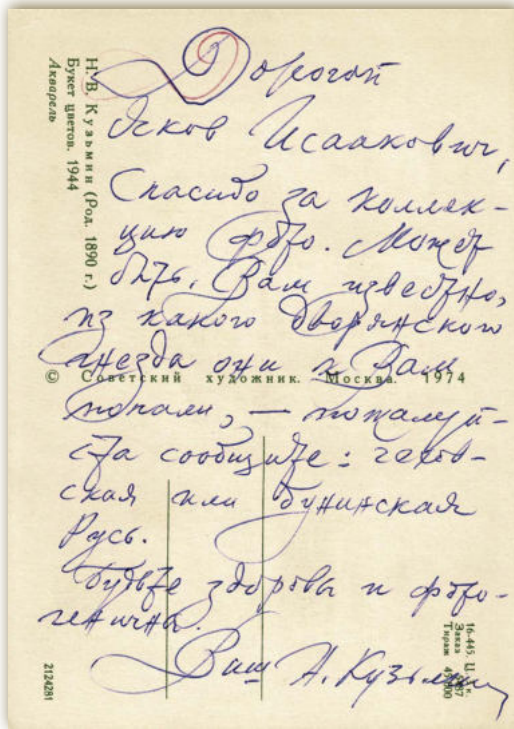 Дорогой
Яков Исаакович,
Спасибо за коллек-
цию фото. Может
быть, Вам известно,
из какого дворянского
гнезда они к Вам
попали, — пожалуй-
ста сообщите: чехов-
ская или бунинская
Русь.
Будьте здоровы и фото-
геничны.
Ваш Н. Кузьмин
Н. В. Кузьмин (Род. 1890 г.)
Букет цветов. 1944
Акварель
© Советский художник. Москва. 1974
16-445. Ц.
Заказ
Тираж
2124281